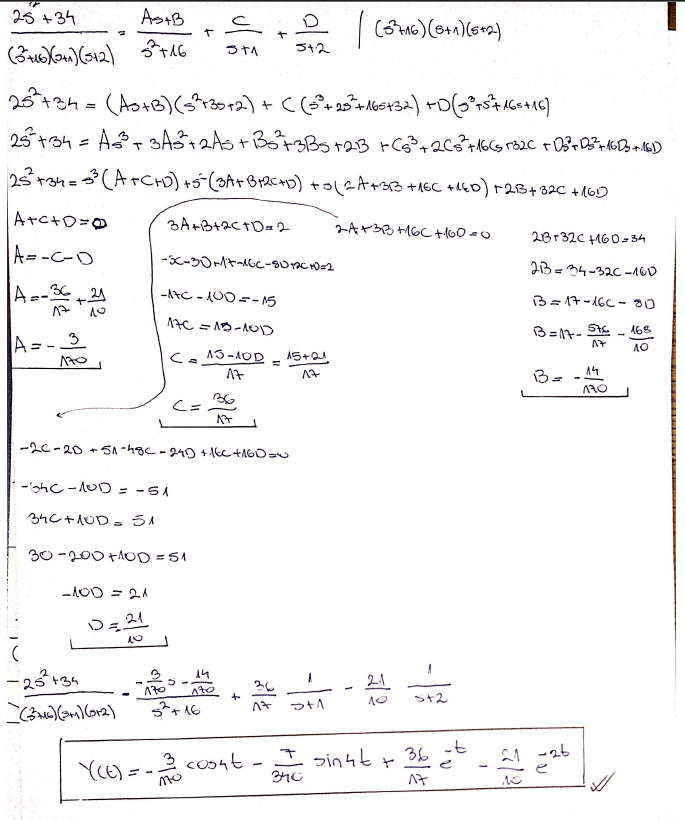 (2s²+34)/((s²+16)(s+1)(s+2)) = (As+B)/(s²+16) + C/(s+1) + D/(s+2) | (s²+16)(s+1)(s+2)
2s²+34 = (As+B)(s²+3s+2) + C(s³+2s²+16s+32) + D(s³+s²+16s+16)
2s²+34 = As³ + 3As² + 2As + Bs² + 3Bs + 2B + Cs³ + 2Cs² + 16Cs + 32C + Ds³ + Ds² + 16Ds + 16D
2s²+34 = s³(A+C+D) + s²(3A+B+2C+D) + s(2A+3B+16C+16D) + 2B+32C+16D
A+C+D=0
A=-C-D
A=-36/17+21/10
A=-3/170
3A+B+2C+D=2
-3C-3D+17-16C-8D+2C+D=2
-17C-10D=-15
17C=15-10D
C=(15-10D)/17=(15+21)/17
C=36/17
2A+3B+16C+16D=0
2B+32C+16D=34
2B=34-32C-16D
B=17-16C-8D
B=17-576/17-168/10
B=-14/170
-2C-2D+51-48C-24D+16C+16D=0
-34C-10D=-51
34C+10D=51
30-20D+10D=51
-10D=21
D=-21/10
(2s²+34)/((s²+16)(s+1)(s+2)) = (-3/170 s - 14/170)/(s²+16) + 36/17 1/(s+1) - 21/10 1/(s+2)
Y(t) = -3/170 cos4t - 7/340 sin4t + 36/17 e^-t - 21/10 e^-2t